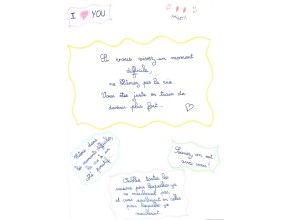 I ♥ YOU
merci
Si vous vivez un moment
difficile,
ne blâmez pas la vie.
Vous êtes juste en train de
devenir plus fort...
Même dans
les moments difficiles,
la vie a un
côté positif
Souriez, on est
avec vous!
Oubliez toutes les
raisons pour lesquelles ça
ne marcherait pas,
et croyez seulement en celle
pour laquelle ça
marchera.